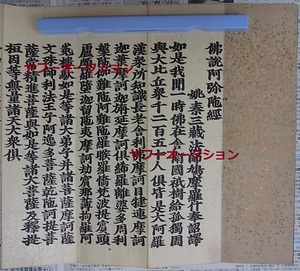 佛説阿弥陀經
姚秦三藏法師鳩摩羅什奉詔譯
如是我聞一時佛在舎衛國祇樹給孤獨園
與大比丘衆千二百五十人俱皆是大阿羅
漢衆所知識長老舎利弗摩訶目犍連摩訶
迦葉摩訶迦旃延摩訶倶絺羅離婆多周利
槃陀伽難陀阿難陀羅睺羅憍梵波提賓頭
盧頗羅堕迦留陀夷摩訶劫賓那薄拘羅阿
㝹樓駄如是等諸大弟子并諸菩薩摩訶薩
文殊師利法王子阿逸多菩薩乾陀訶提菩
薩常精進菩薩與如是等諸大菩薩及釋提
桓因等無量諸天大衆俱
ヤフーオークション
ヤフーオークション